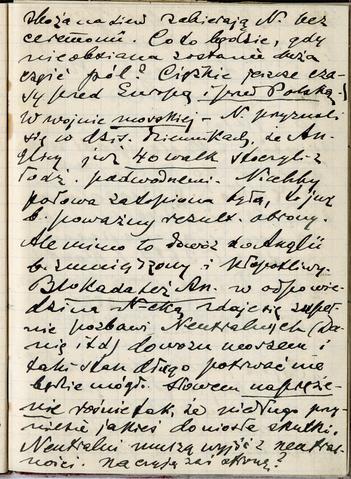 zboża na siew zabierają N. bez
ceremonii. Co to będzie, gdy
nieobsiana zostanie duża
część pól? Ciężkie jeszcze cza-
sy przed Europą i przed Polską.
W wojnie morskiej – N. przyznali
się w dzis. dziennikach, że An-
glicy już 40 walk stoczyli z
łodz. podwodnemi. Niechby
połowa zatopiona była, to już
b. poważny result. obrony.
Ale mimo to dowóz do Anglii
b. zmniejszony i kłopotliwy.
Blokada też An. w odpowie-
dzi na N-cką zdaje się zupeł-
nie pozbawi Neutralnych (Da-
nię itd) dowozu morzem i
taki stan długo potrwać nie
będzie mógł. Słowem napręże-
nie rośnie tak, że niedługo przy-
niesie jakieś doniosłe skutki.
Neutralni muszą wyjść z neutral-
ności. Na czyją zaś stronę?